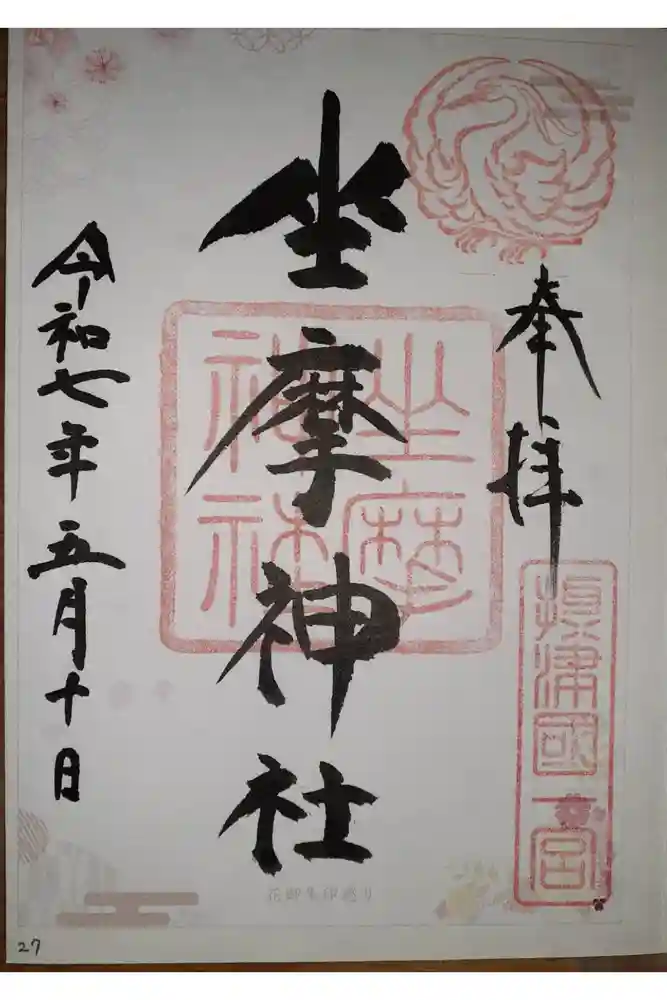 奉拝
攝津國一宮
坐摩神社
坐摩神社
令和七年五月十日
花御朱印巡り
27